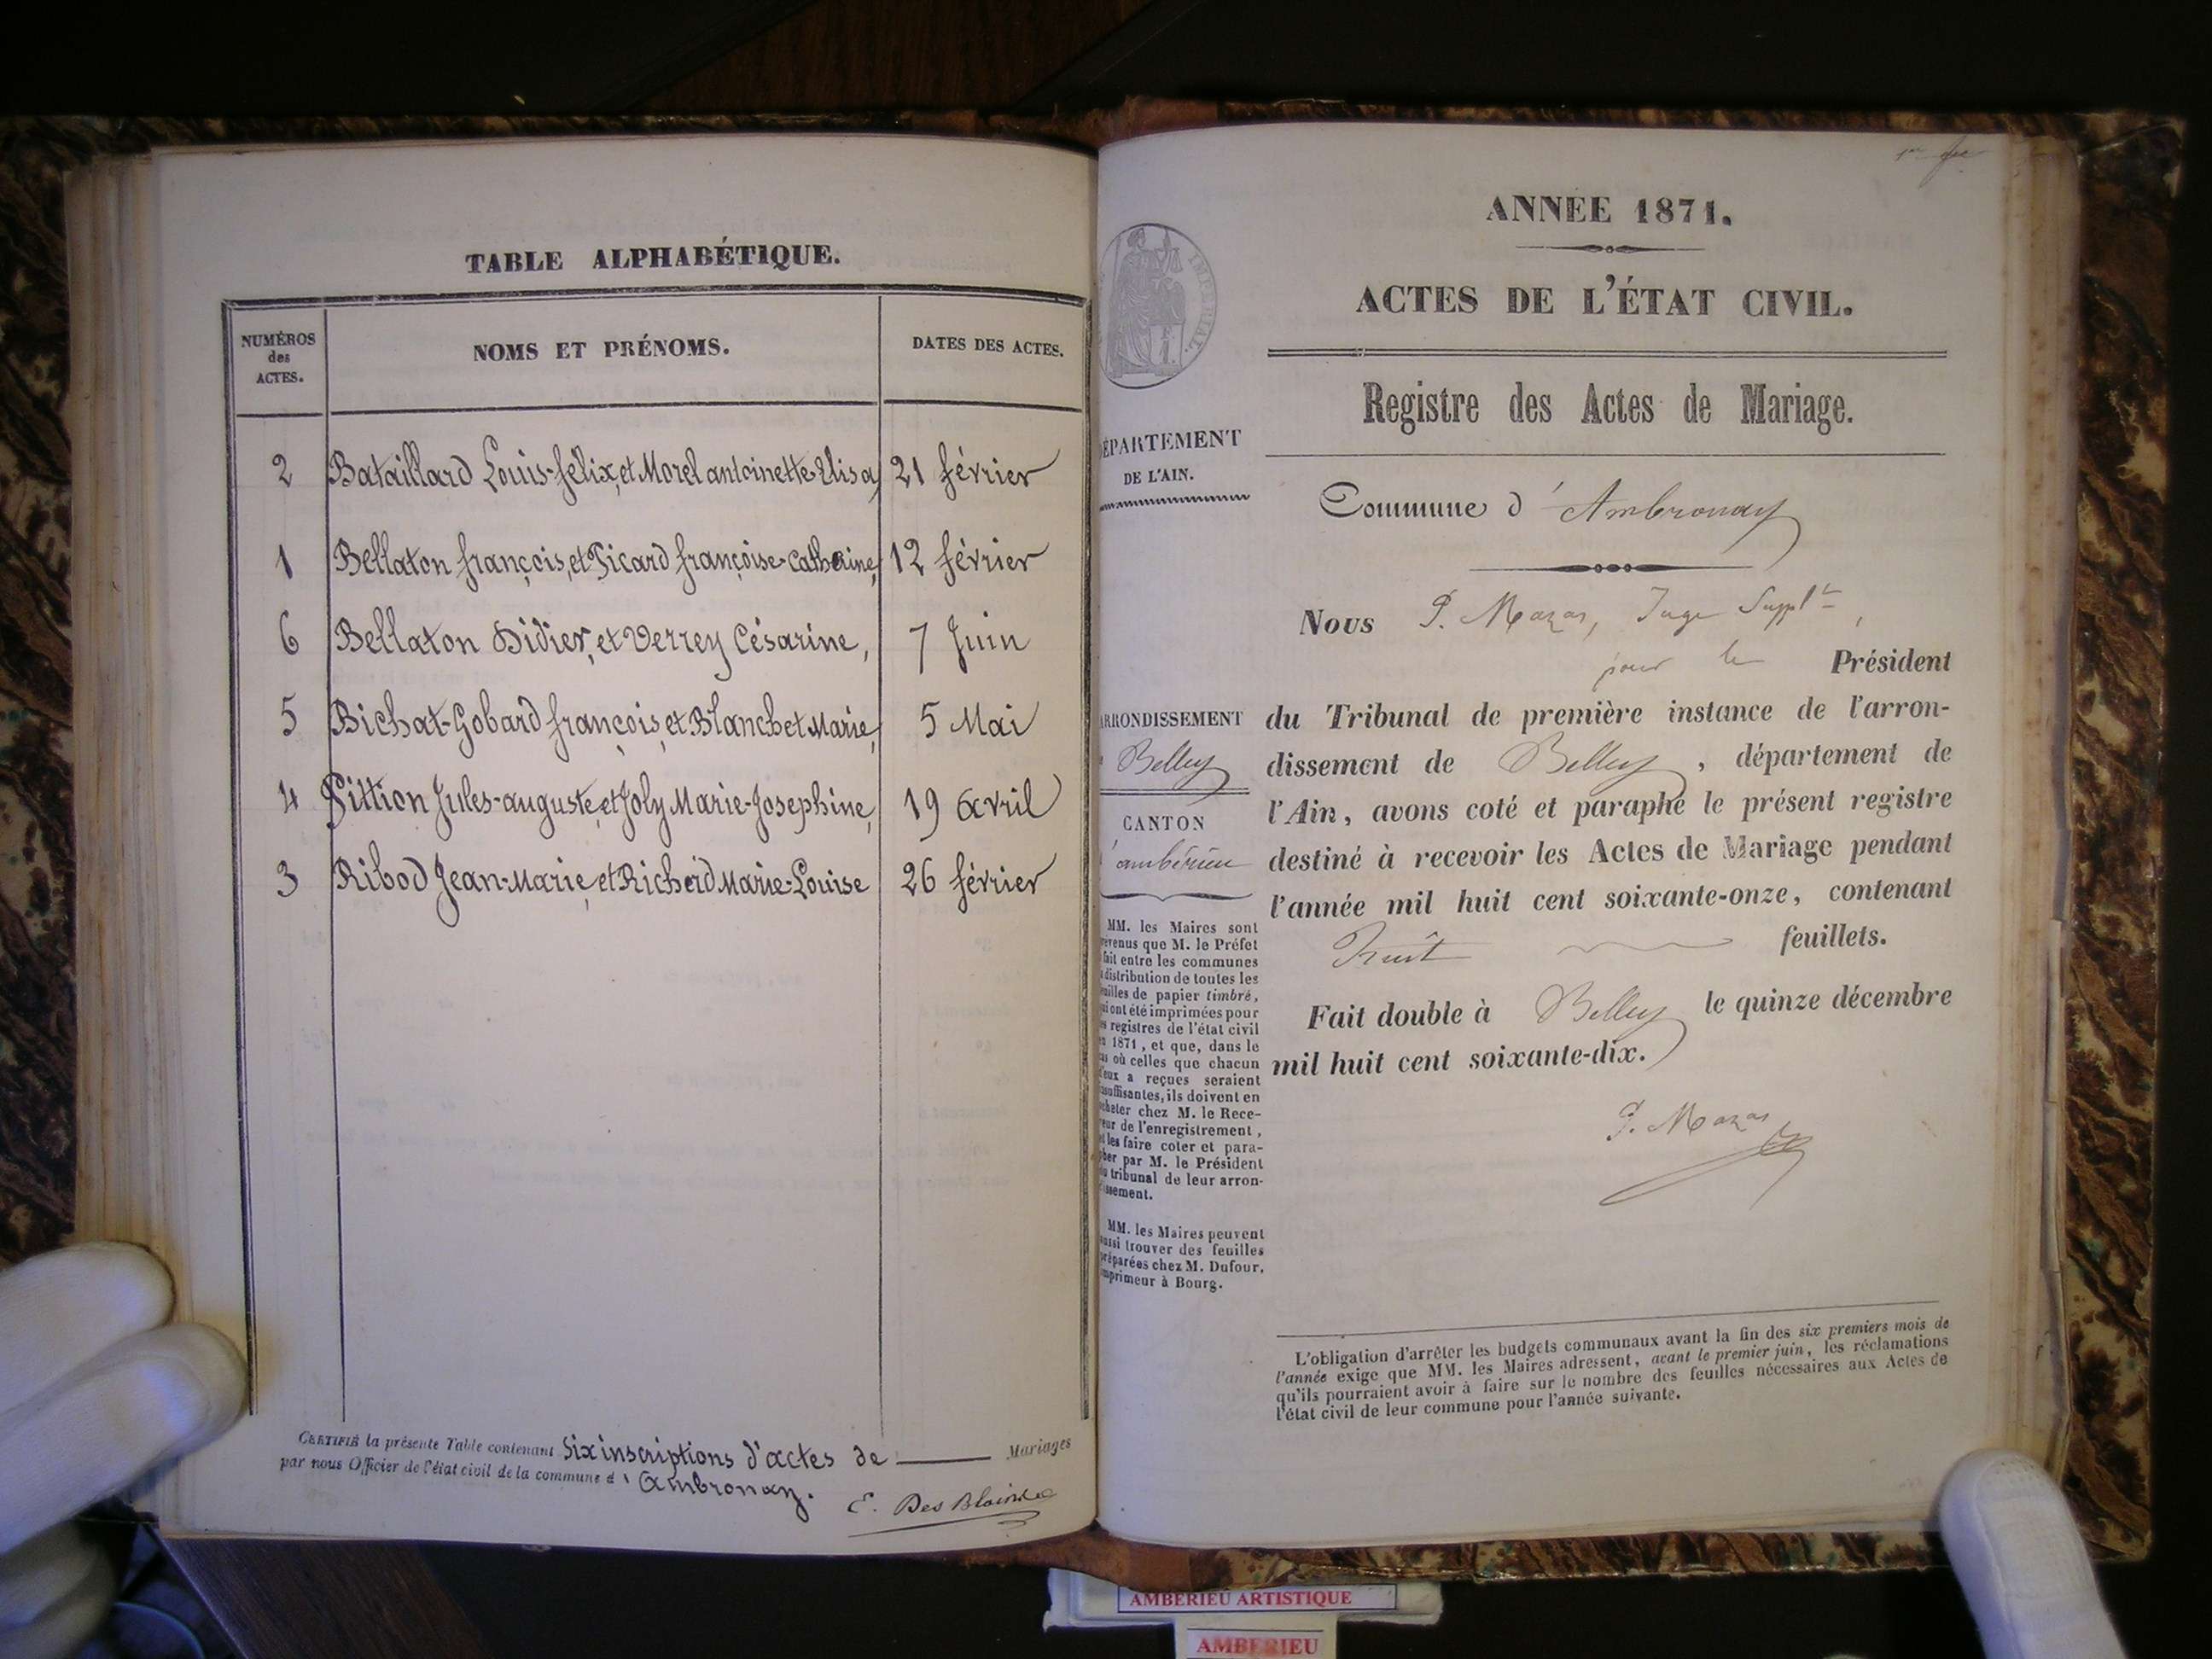 TABLE ALPHABÉTIQUE.
NUMÉROS
des
ACTES.
NOMS ET PRÉNOMS.
DATES DES ACTES.
2 Bataillard Louis-félix, et Morel antoinette-Elisa, 21 février
1 Bellaton françois, et Picard françoise-Catherine, 12 février
6 Bellaton Didier, et Verrey Césarine, 7 Juin
5 Bichat-Gobard françois, et Blanchet Marie, 5 Mai
4 Pittion Jules-auguste, et Joly Marie-Josephine, 19 avril
3 Ribod Jean-Marie, et Richerd Marie-Louise 26 février
CERTIFIÉ la présente Table contenant Six inscriptions d'actes de Mariages
par nous Officier de l'état civil de la commune d' Ambronay.
E. Des
1er
ANNÉE 1871.
ACTES DE L'ÉTAT CIVIL.
Registre des Actes de Mariage.
IMPERIAL.
F
1.
DÉPARTEMENT
DE L'AIN.
Commune d'Ambronay
Nous P. Mazas, Juge Supplt,
pour le Président
du Tribunal de première instance de l'arron-
dissement de Belley, département de
l'Ain, avons coté et paraphé le présent registre
destiné à recevoir les Actes de Mariage pendant
l'année mil huit cent soixante-onze, contenant
huit feuillets.
Fait double à Belley le quinze décembre
mil huit cent soixante-dix.
P. Mazas
ARRONDISSEMENT
Belley
CANTON
d'ambérieu
MM. les Maires sont
prévenus que M. le Préfet
fait entre les communes
la distribution de toutes les
feuilles de papier timbré,
qui ont été imprimées pour
les registres de l'état civil
en 1871, et que, dans le
cas où celles que chacun
d'eux a reçues seraient
insuffisantes, ils doivent en
acheter chez M. le Rece-
veur de l'enregistrement,
et les faire coter et para-
pher par M. le Président
du tribunal de leur arron-
dissement.
MM. les Maires peuvent
aussi trouver des feuilles
préparées chez M. Dufour,
imprimeur à Bourg.
L'obligation d'arrêter les budgets communaux avant la fin des six premiers mois de
l'année exige que MM. les Maires adressent, avant le premier juin, les réclamations
qu'ils pourraient avoir à faire sur le nombre des feuilles nécessaires aux Actes de
l'état civil de leur commune pour l'année suivante.
AMBERIEU ARTISTIQUE
AMBERIEU